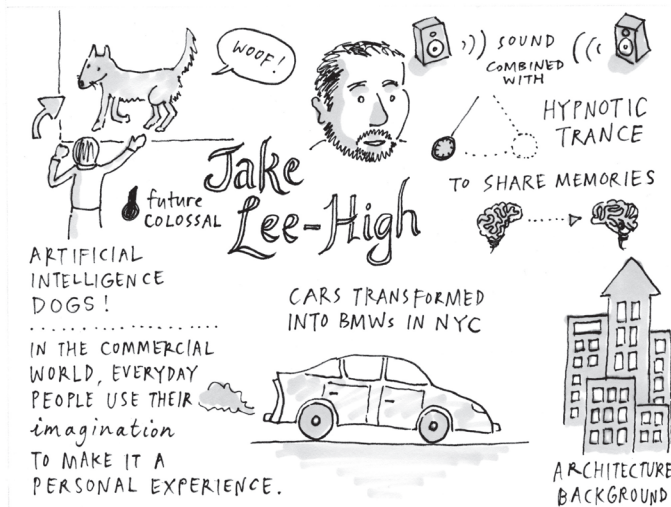 WOOF!
SOUND
COMBINED
WITH
HYPNOTIC
TRANCE
TO SHARE MEMORIES
Jake
Lee-High
future
COLOSSAL
ARTIFICIAL
INTELLIGENCE
DOGS!
IN THE COMMERCIAL
WORLD, EVERYDAY
PEOPLE USE THEIR
imagination
TO MAKE IT A
PERSONAL EXPERIENCE.
CARS TRANSFORMED
INTO BMWs IN NYC
ARCHITECTURE
BACKGROUND